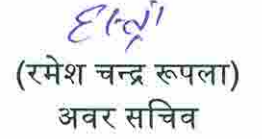 (रमेश चन्द्र रूपला)
अवर सचिव